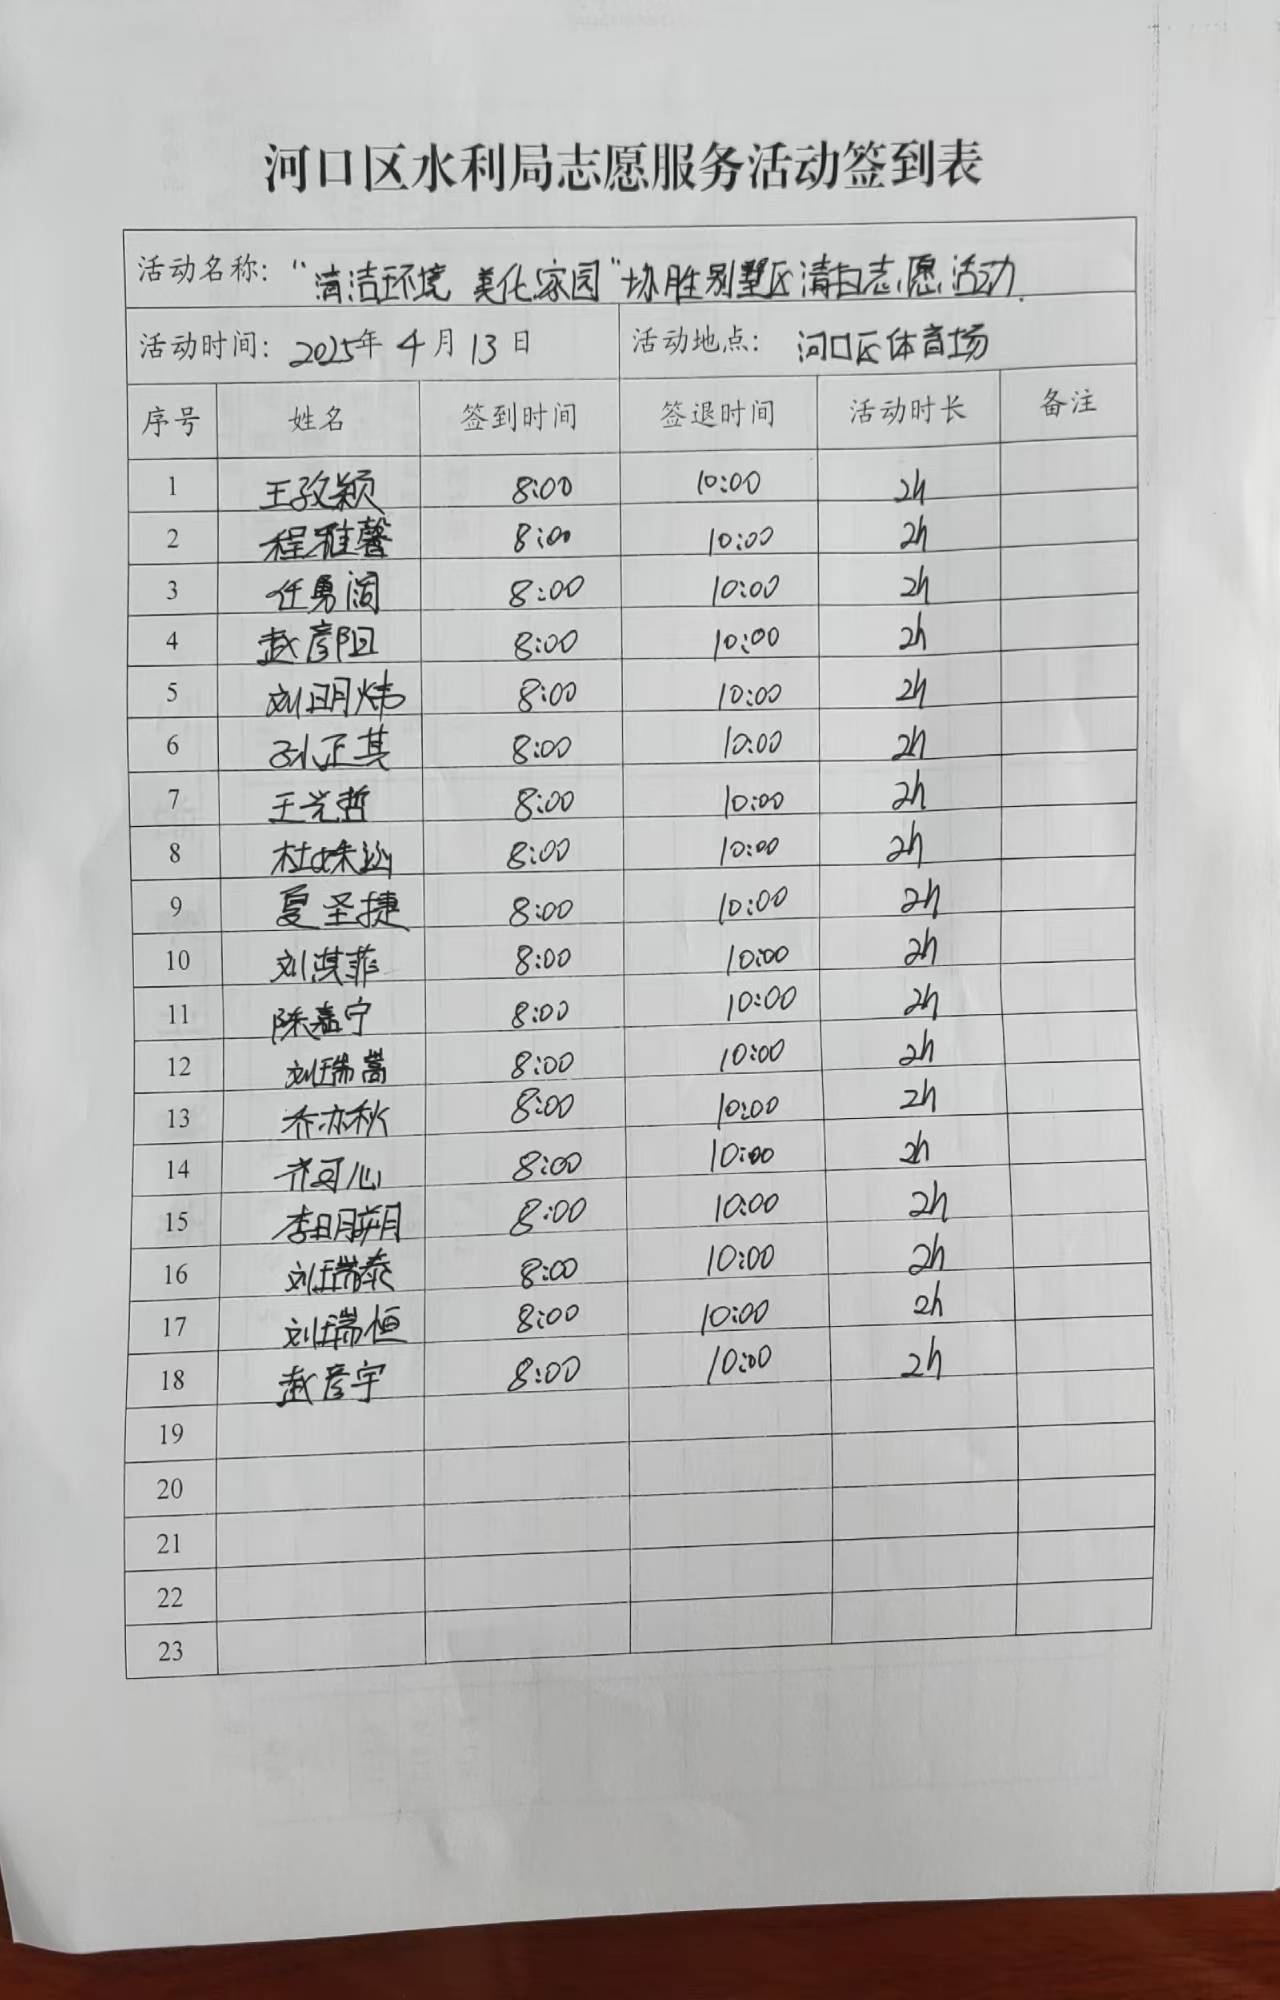 河口区水利局志愿服务活动签到表
活动名称："清洁环境 美化家园"协胜别墅区清扫志愿活动.
活动时间：2025年4月13日 活动地点：河口区体育场
序号 姓名 签到时间 签退时间 活动时长 备注
1 王孜颖 8:00 10:00 2h
2 程雅馨 8:00 10:00 2h
3 任勇阔 8:00 10:00 2h
4 赵彦阳 8:00 10:00 2h
5 刘明炜 8:00 10:00 2h
6 孙正其 8:00 10:00 2h
7 王光哲 8:00 10:00 2h
8 杜姝涵 8:00 10:00 2h
9 夏圣捷 8:00 10:00 2h
10 刘淇菲 8:00 10:00 2h
11 陈嘉宁 8:00 10:00 2h
12 刘瑞嵩 8:00 10:00 2h
13 乔亦秋 8:00 10:00 2h
14 齐可心 8:00 10:00 2h
15 李明朔 8:00 10:00 2h
16 刘瑞泰 8:00 10:00 2h
17 刘瑞恒 8:00 10:00 2h
18 赵彦宇 8:00 10:00 2h
19
20
21
22
23